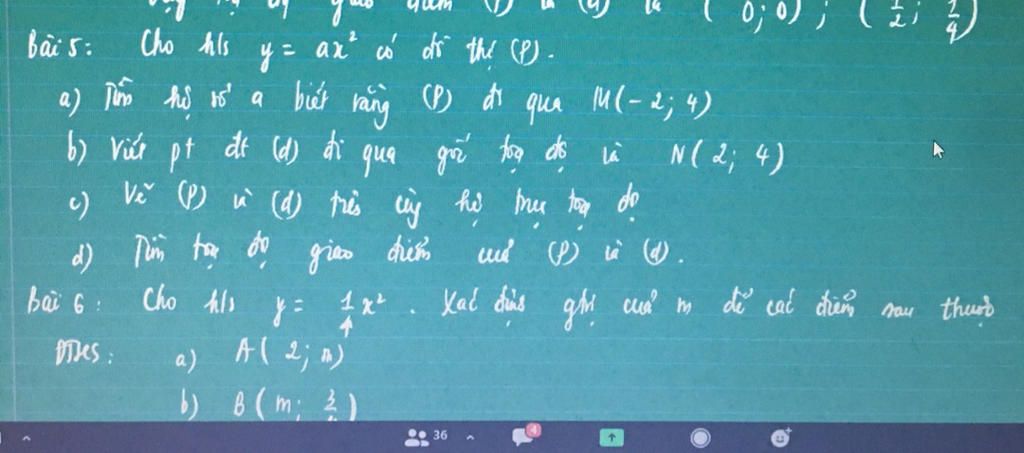 giao điểm (P) và (d) là (0; 0); (1/2; 1/4)
Bài 5: Cho h/s y = ax² có đồ thị (P).
a) Tìm hệ số a biết rằng (P) đi qua M(-2; 4)
b) Viết pt đt (d) đi qua gốc tọa độ và N(2; 4)
c) Vẽ (P) và (d) trên cùng hệ trục tọa độ
d) Tìm tọa độ giao điểm của (P) và (d).
Bài 6: Cho h/s y = 1x². Xác định gtrị của m để các điểm sau thuộc
ĐTHS: a) A(2; m)
b) B(m;
36 4